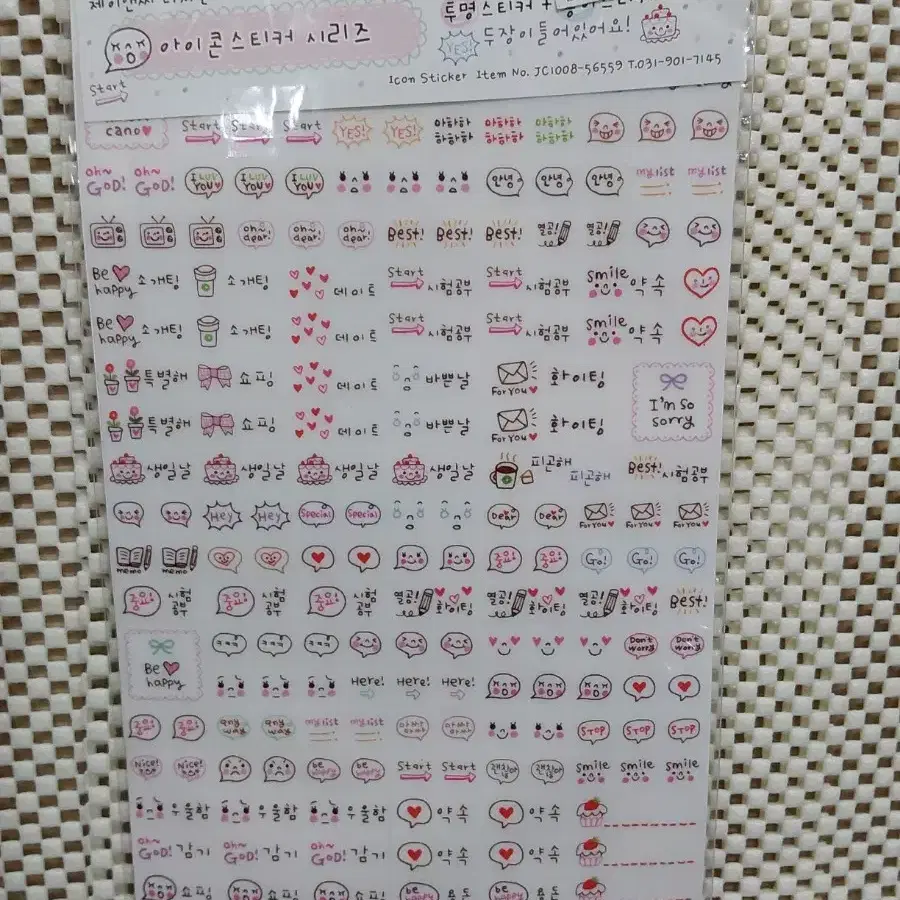 아이콘스티커 시리즈
투명스티커 +
YES! 두장이들어있어요!
Start
Icon Sticker Item No. JC1008-56559 T.031-901-7145
cano Start Start Start YES! YES! 아하하 하하하 아하하 하하하 아하하 하하하
oh~ GOD! oh~ GOD! I LUV YOU I LUV YOU I LUV YOU 안녕 안녕 안녕 my list my list
oh~ dear! oh~ dear! oh~ dear! Best! Best! Best! 열공! 열공!
Be happy 소개팅 소개팅 데이트 Start 시험공부 Start 시험공부 smile 약속
Be happy 소개팅 소개팅 데이트 Start 시험공부 Start 시험공부 smile 약속
특별해 쇼핑 데이트 바쁜날 For you 화이팅
I'm so sorry
특별해 쇼핑 데이트 바쁜날 For you 화이팅
생일날 생일날 생일날 생일날 피곤해 피곤해 Best! 시험공부
Hey Hey Special Special Dear Dear For you For you For you
memo memo 중요! 중요! Go! Go! Go!
중요! 시험공부 중요! 시험공부 중요! 시험공부 열공! 화이팅 열공! 화이팅 열공! 화이팅 Best!
Be happy
ㅋㅋㅋ ㅋㅋㅋ ㅋㅋㅋ Don't worry Don't worry
Here! Here! Here!
중요! 중요! any way any way my list my list 아싸 아싸 STOP STOP STOP
Nice! Nice! be happy be happy Start Start 괜찮아 괜찮아 smile smile smile
우울함 우울함 우울함 약속 약속
oh~ GOD! 감기 oh~ GOD! 감기 oh~ GOD! 감기 약속 약속
쇼핑 쇼핑 쇼핑 be happy 용돈 be happy 용돈